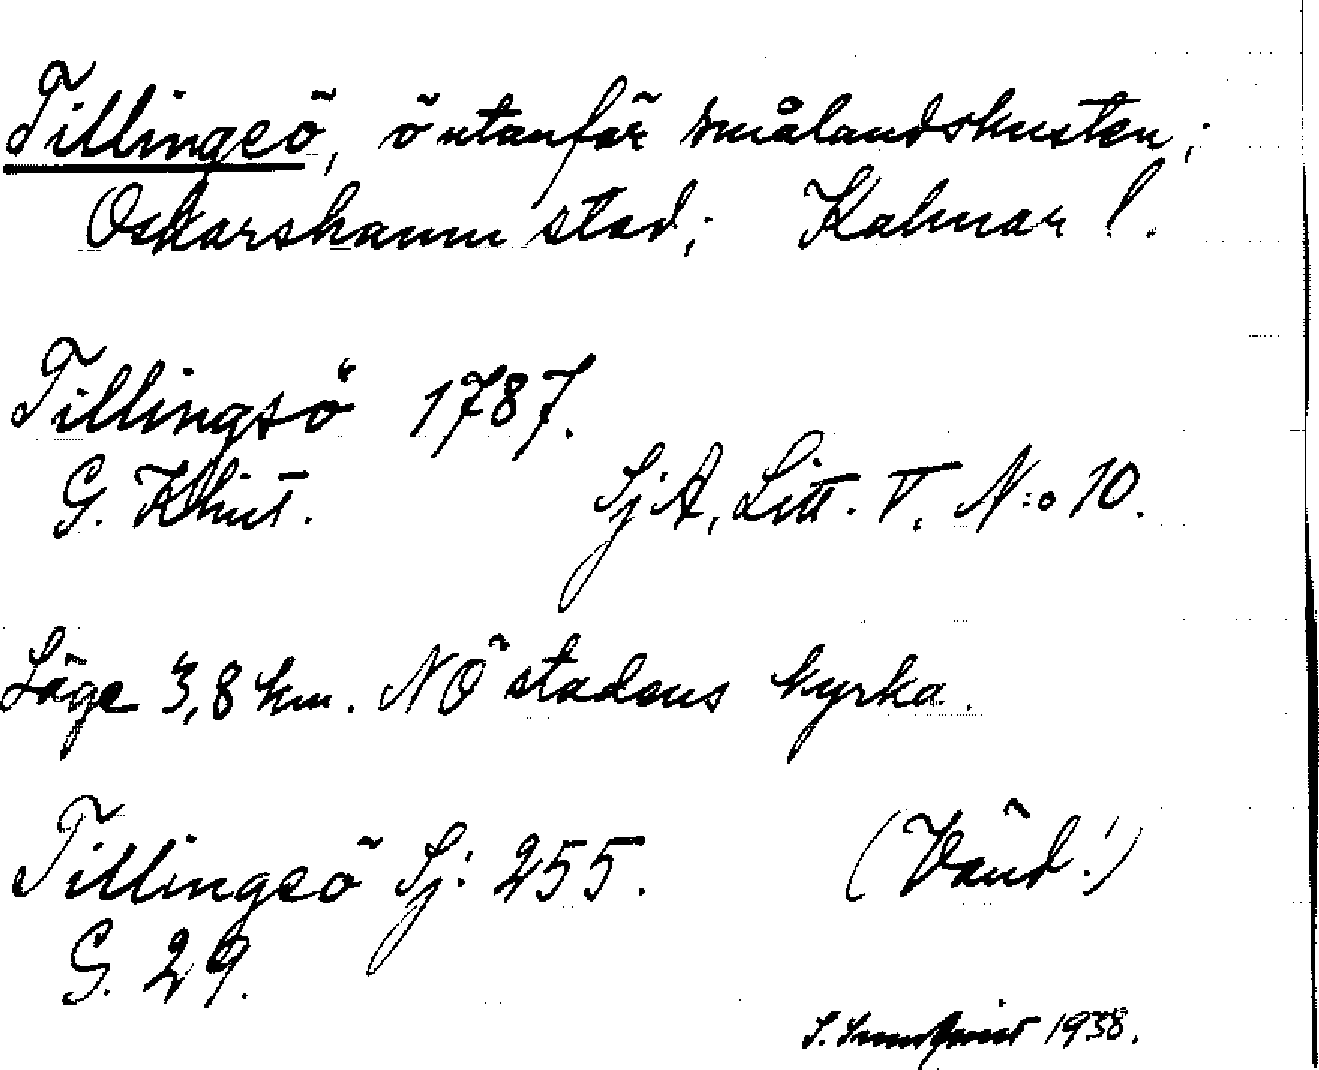 Tillingeö, ö utanför Smålandskusten;
Oskarshamn stad; Kalmar l.
Tillingsö 1787.
G. Klint. SjA, Litt. T. N:o 10.
Läge 3,8 km. NÖ stadens kyrka.
Tillingeö Sj: 255. (Vänd!)
G. 29.
S. Sundqvist 1938.